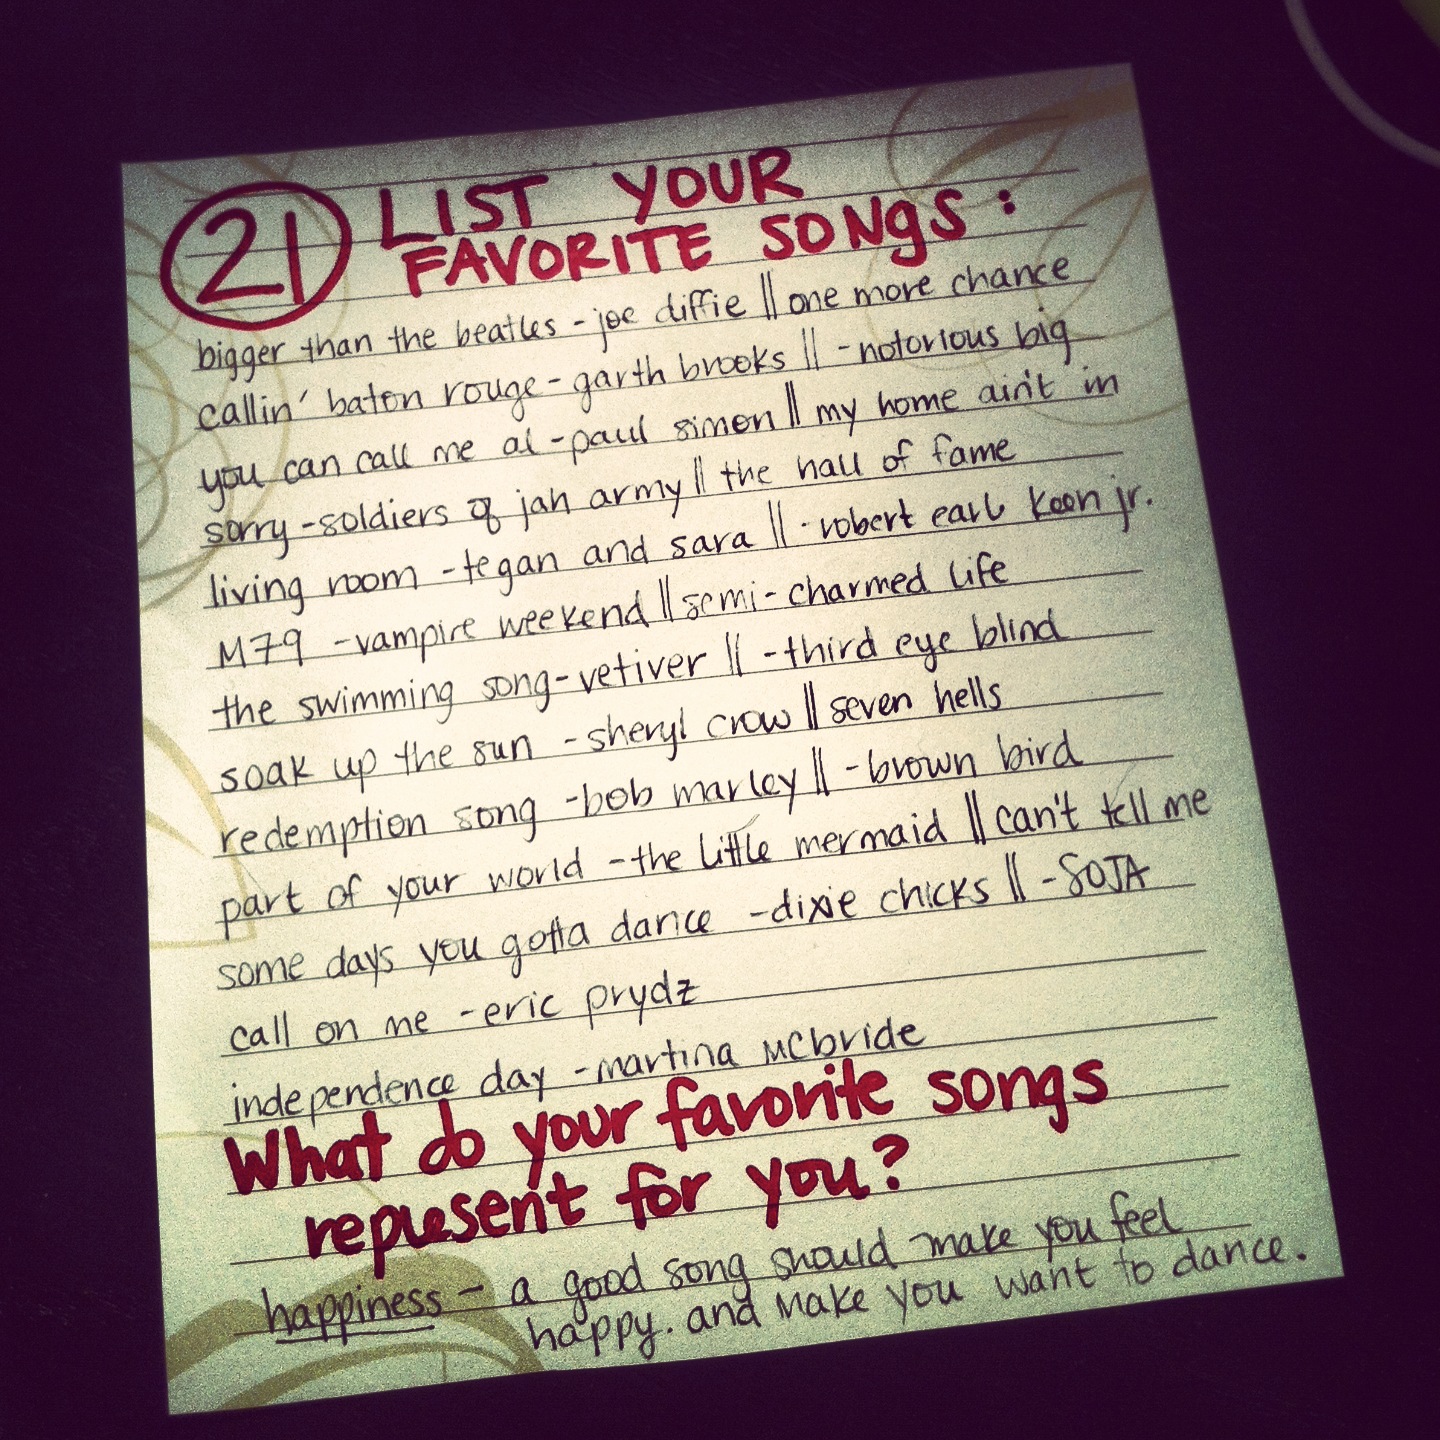 21 LIST YOUR
FAVORITE SONGS:
bigger than the beatles - joe diffie || one more chance
callin' baton rouge - garth brooks || - notorious big
you can call me al - paul simon || my home ain't in
sorry - soldiers of jah army || the hall of fame
living room - tegan and sara || - robert earl keen jr.
M79 - vampire weekend || semi-charmed life
the swimming song - vetiver || - third eye blind
soak up the sun - sheryl crow || seven hells
redemption song - bob marley || - brown bird
part of your world - the little mermaid || can't tell me
some days you gotta dance - dixie chicks || - SOJA
call on me - eric prydz
independence day - martina mcbride
What do your favorite songs
represent for you?
happiness - a good song should make you feel
happy. and make you want to dance.